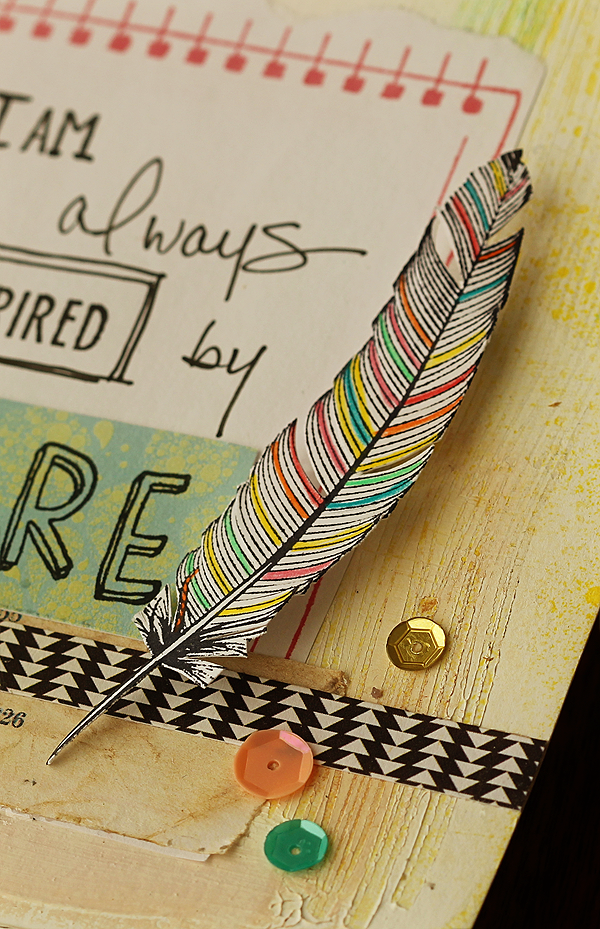 I AM
always
PIRED
by
RE
26